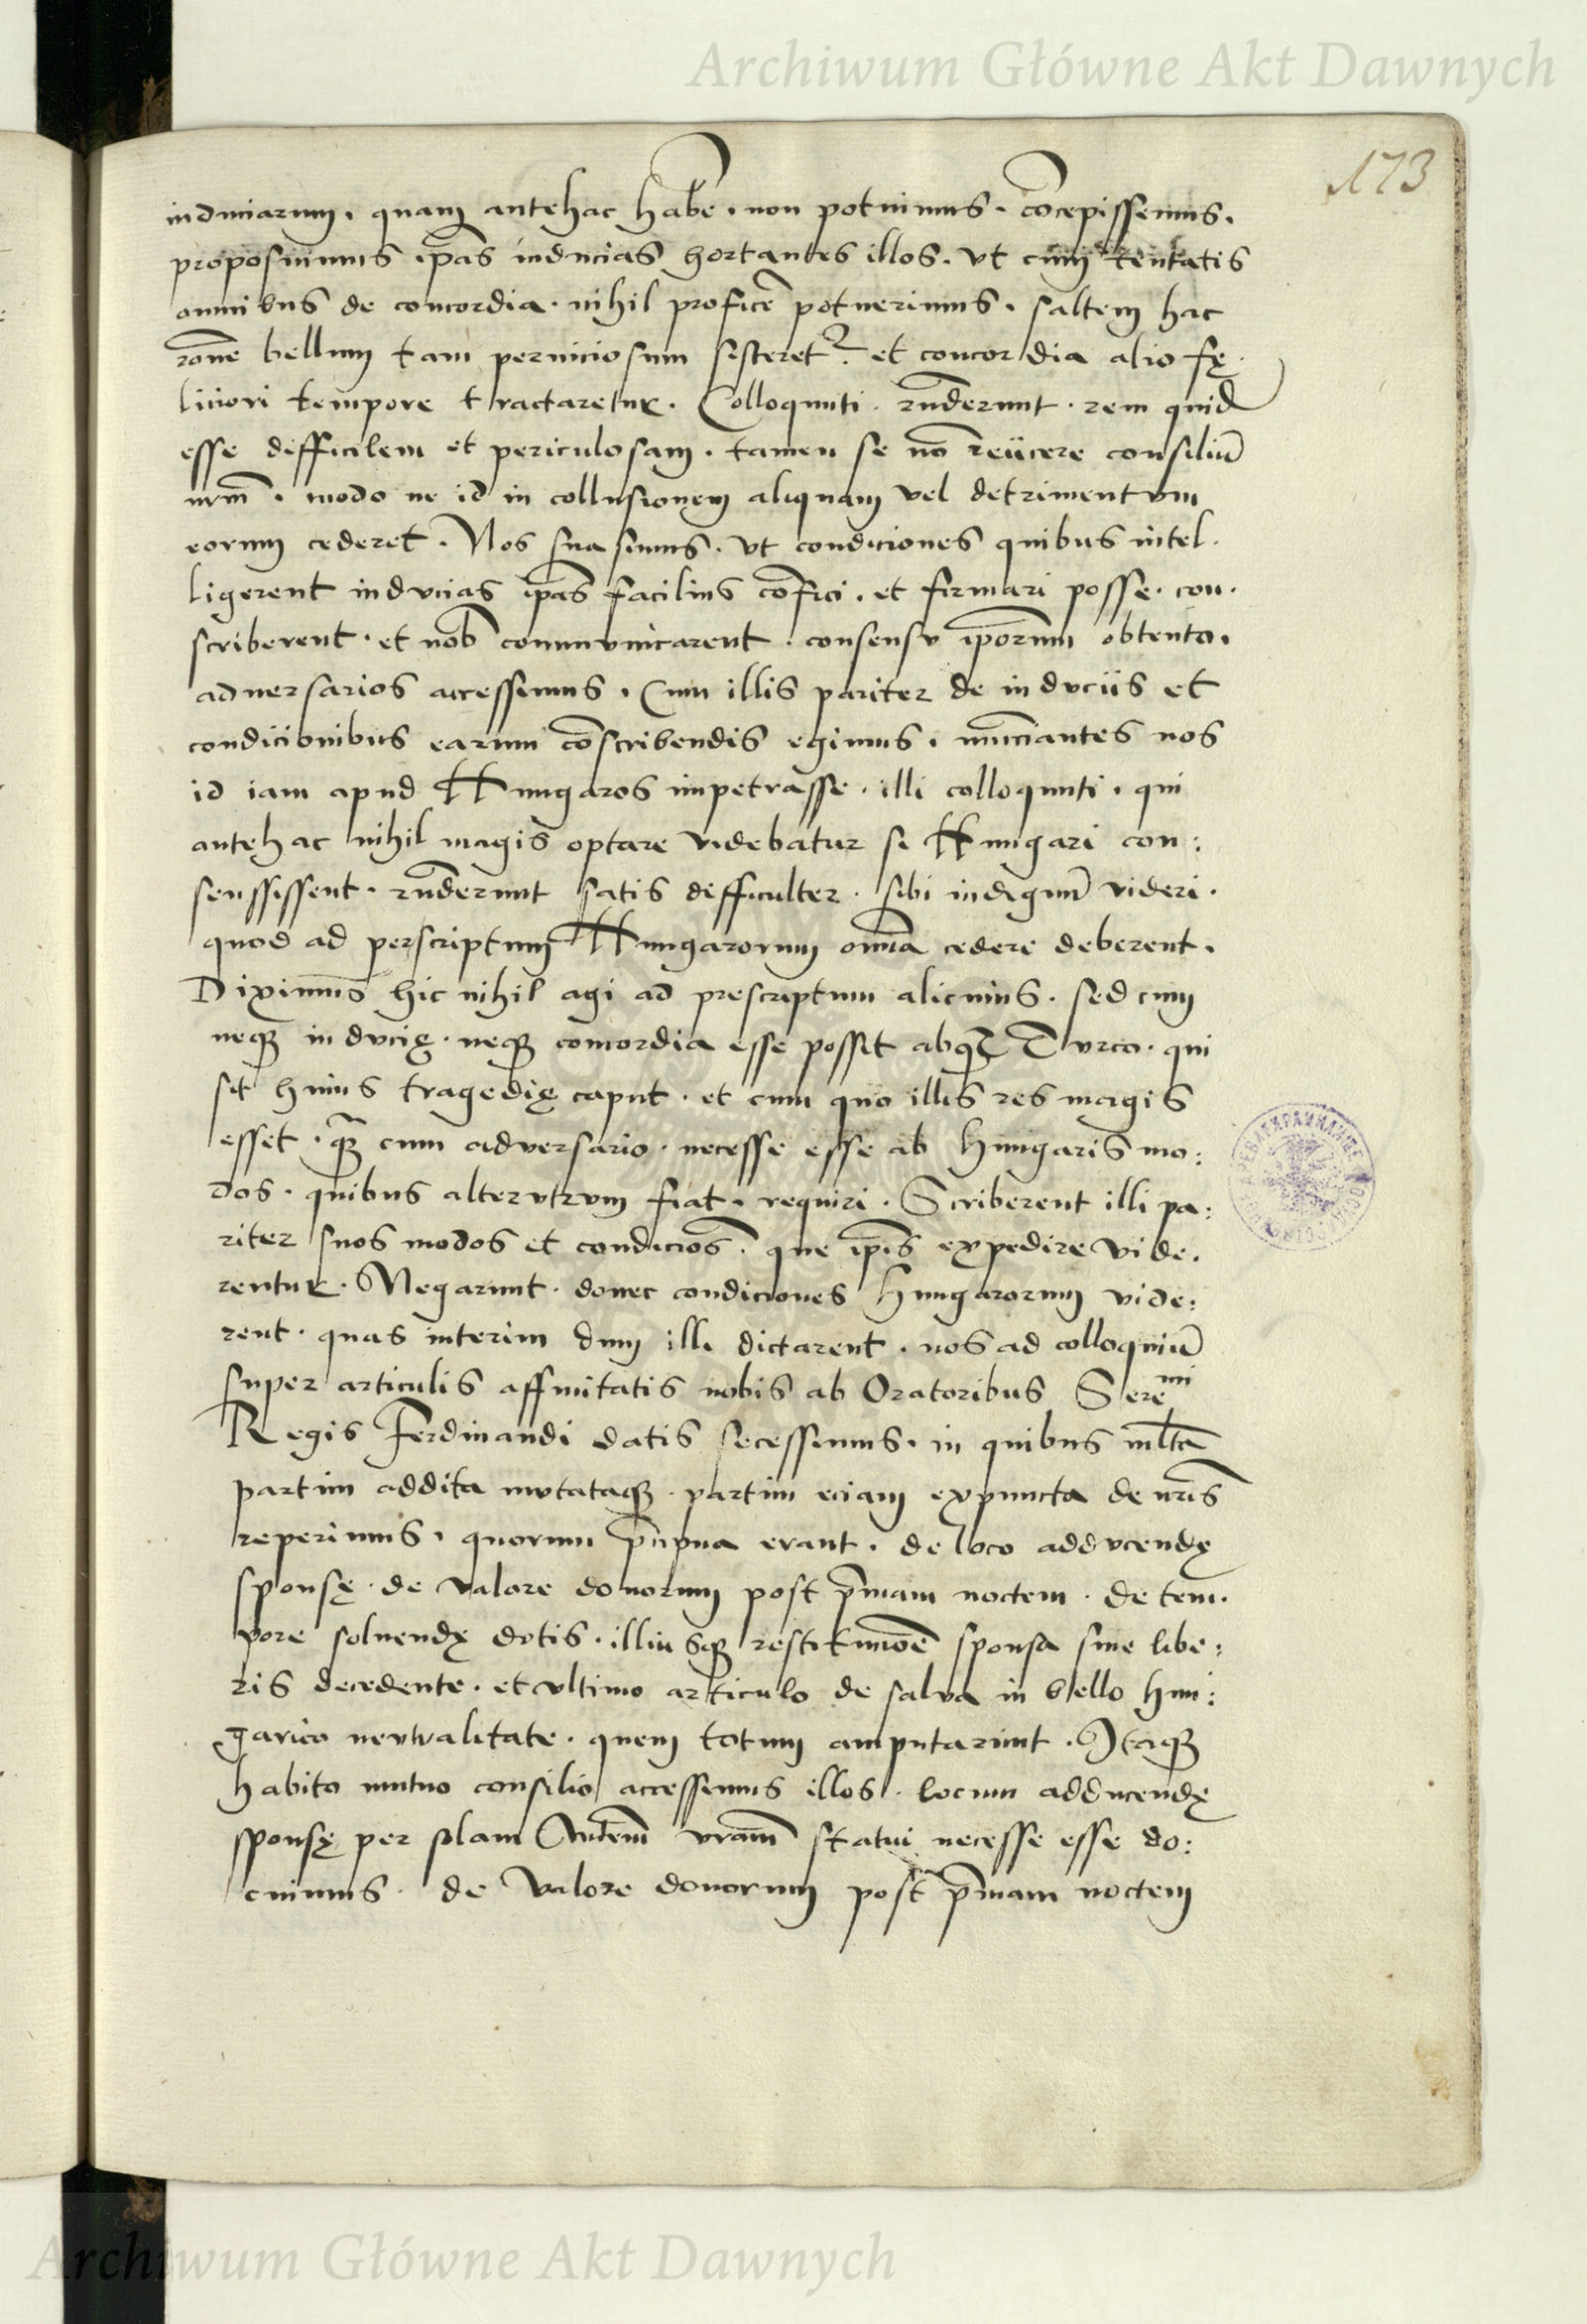 Archiwum Główne Akt Dawnych
173
induciarum. quam antehac habe͞. non potuimus. co͞cepissemus.
proposuimus ip͞as inducias hortantes illos. vt cum tentatis
omnibus de concordia. nihil profice͞ potuerimus. saltem hac
ro͞ne bellum tam perniciosum sisteret᷑. et concordia alio fę.
liciori tempore tractaretur. Colloquuti. rn͞derunt. rem quid͞
esse difficilem et periculosam. tamen se no͞ reiicere consiliu͞
nr͞m. modo ne id in collusionem aliquam vel detrimentvm
eorum cederet. Nos suasimus. vt condiciones quibus intel.
ligerent indvcias ip͞as facilius co͞fici. et firmari posse. con.
scriberent. et nob͞ communicarent. consensv ip͞orum obtento.
aduersarios accessimus. Cum illis pariter de indvciis et
condicionibus earum co͞scribendis egimus. nu͞nciantes nos
id iam apud Hungaros impetrasse. illi colloquuti. qui
antehac nihil magis optare videbatur si Hungari con:
senssissent. rn͞derunt satis difficulter. sibi indignu͞ videri.
quod ad perscriptum Hungarorum om͞ia cedere deberent.
Diximus hic nihil agi ad prescriptum alicuius. sed cum
neqꝫ indvcię. neqꝫ concordia esse possit absqꝫ Tvrco. qui
sit huius tragedię caput. et cum quo illis res magis
esset. qͣꝫ cum adversario. necesse esse ab Hungaris mo:
dos. quibus altervtrvm fiat. requiri. Scriberent illi pa:
riter suos modos et condicio͞s. que ip͞is expedire vide.
rentur. Negarunt. donec condiciones Hungarorum vide:
rent. quas interim dum illi dictarent. nos ad colloquiu͞
super articulis affinitatis nobis ab Oratoribus Sereᵐⁱ
Regis Ferdinandi datis secessimus. in quibus ml͞ta
partim addita mvtataqꝫ. partim eciam expuncta de nr͞is
reperimus. quorum p͞ncipua erant. de loco addvcendę
sponsę. de valore donorum post p͞mam noctem. de tem.
pore soluendę dotis. illiusqꝫ restitucio͞e sponsa sine libe:
ris decedente. et vltimo articulo de salva in bello Hun:
garico nevtralitate. quem totum amputarunt. Itaqꝫ
habito mutuo consilio accessimus illos. locum adducendę
sponsę per solam vr͞am statui necesse esse do:
cuimus. de valore donorum post p͞mam noctem
Archiwum Główne Akt Dawnych